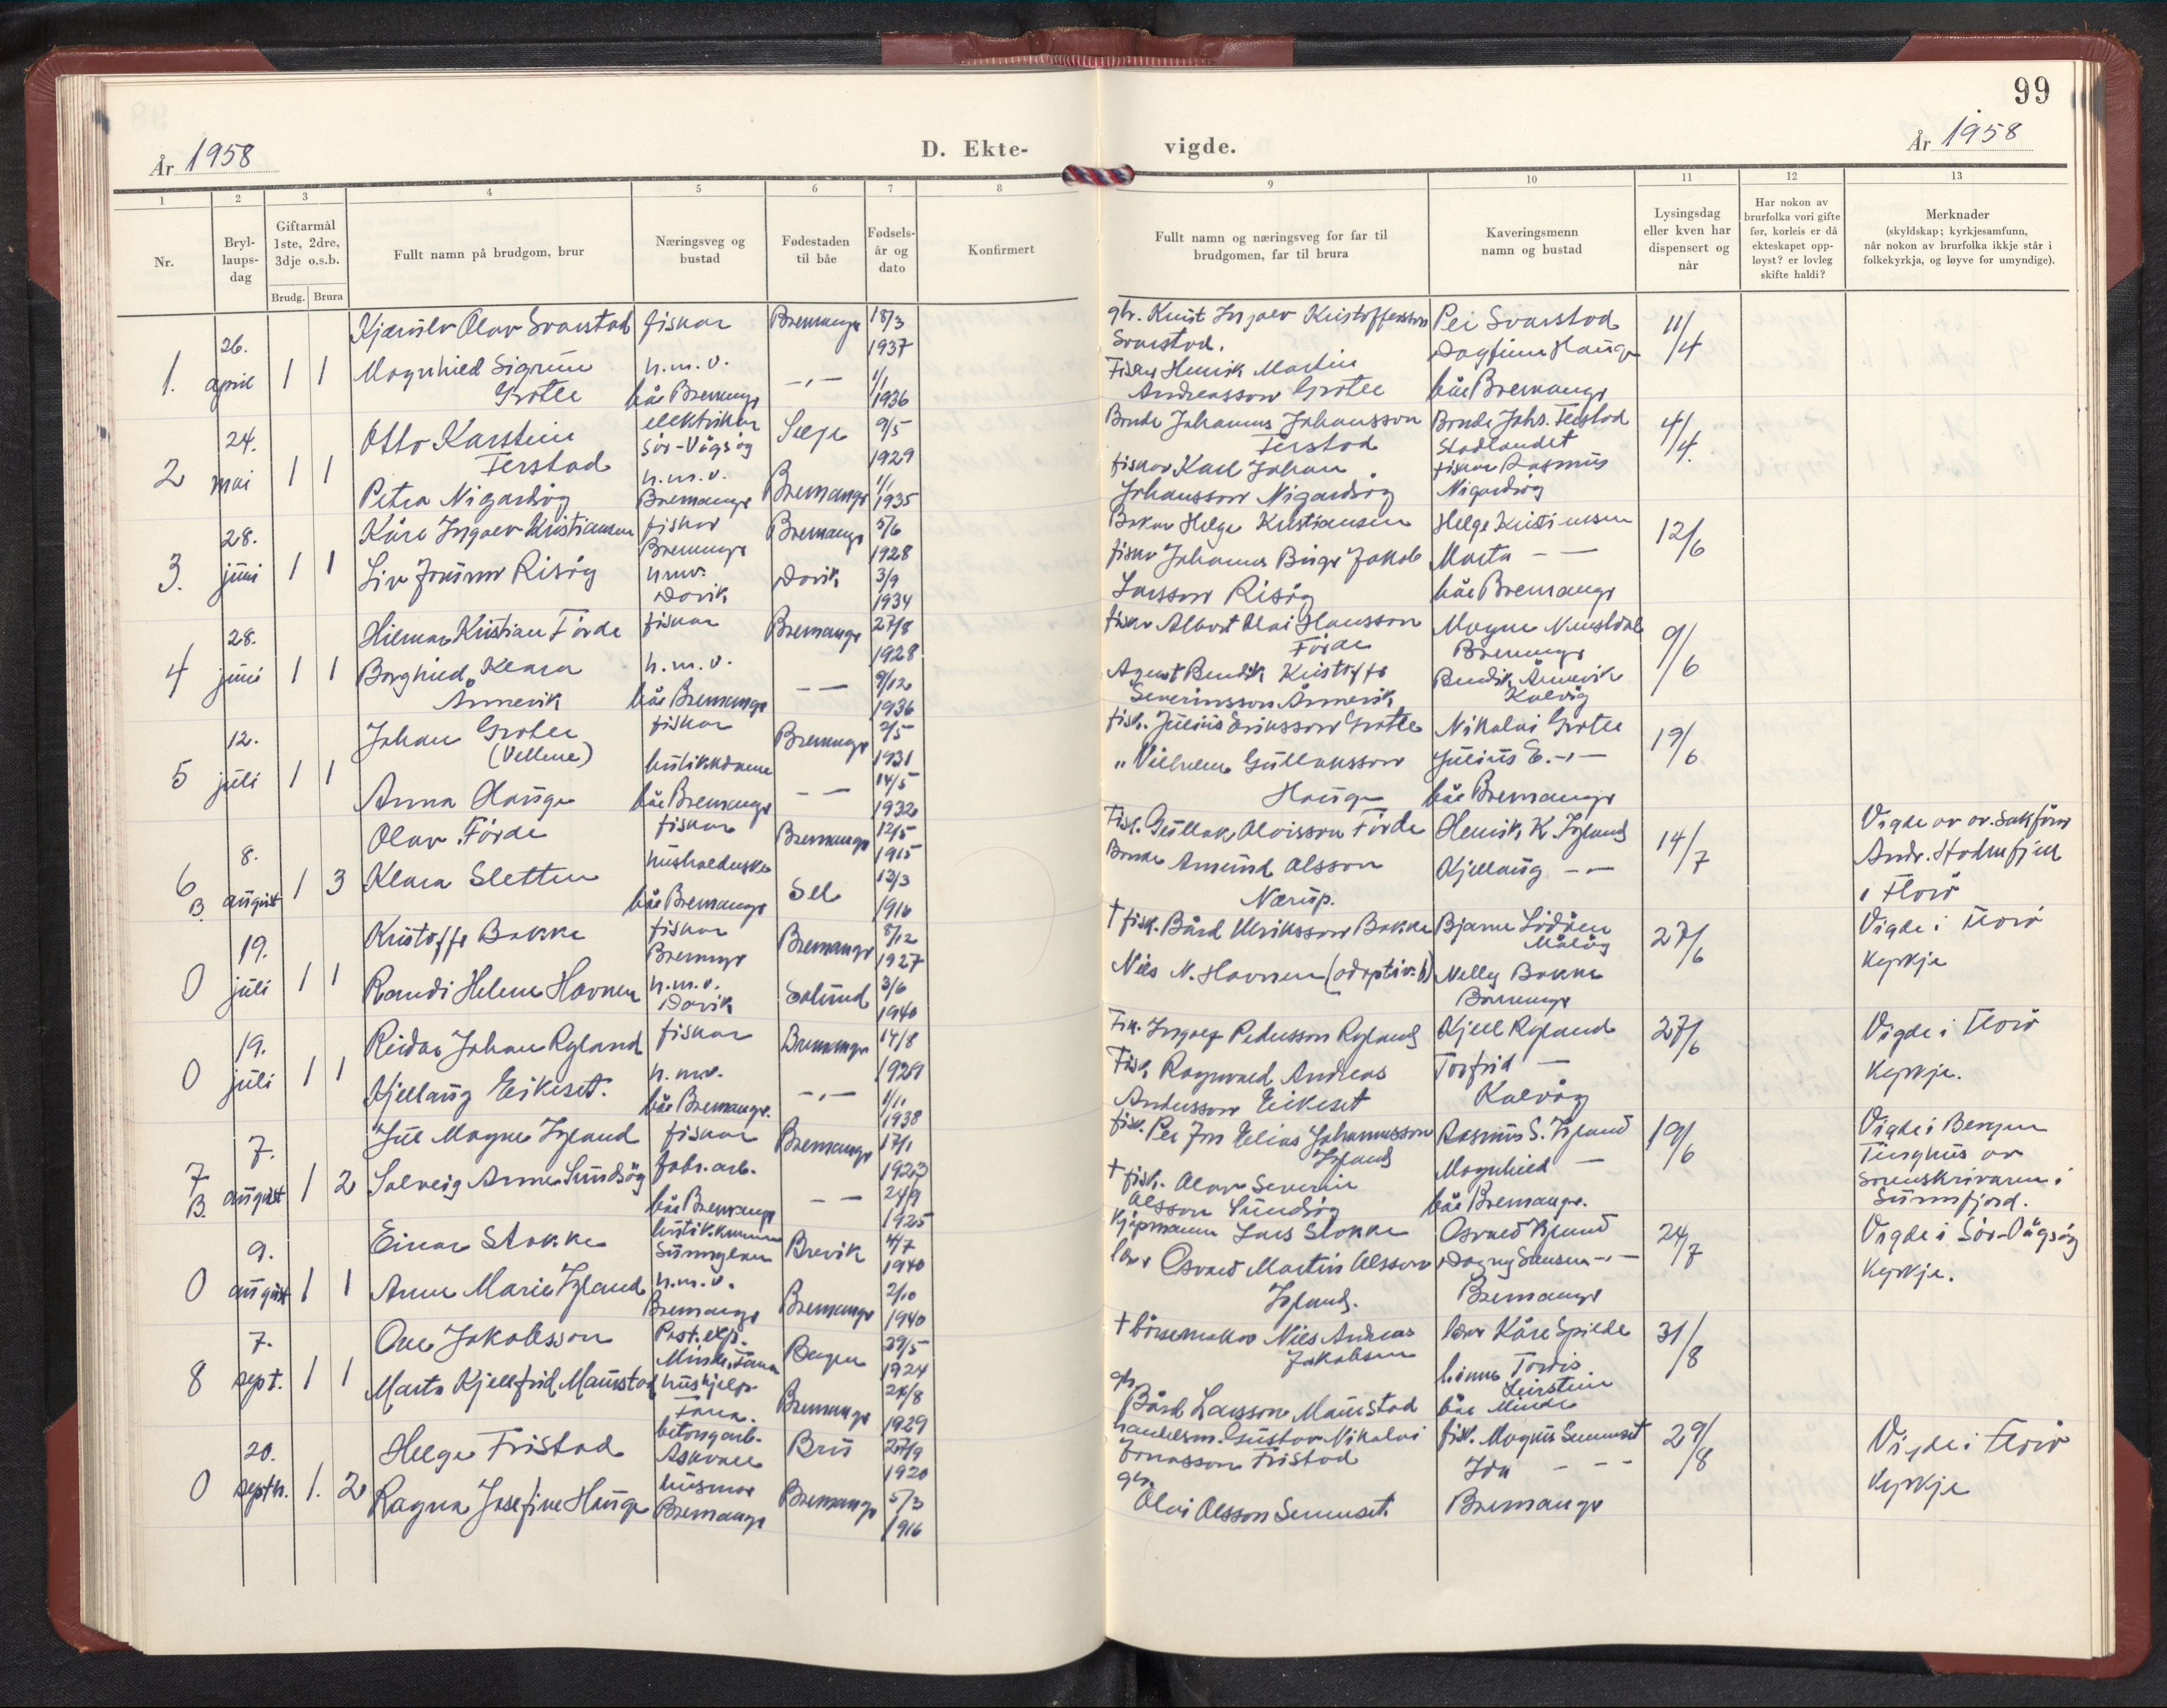 99
År 1958
D. Ekte-
vigde.
År 1958
1
2
3
4
5
6
7
8
9
10
11
12
13
Nr.
Bryl-
laups-
dag
Giftarmål
1ste, 2dre,
3dje o.s.b.
Brudg. Brura
Fullt namn på brudgom, brur
Næringsveg og
bustad
Fødestaden
til båe
Fødsels-
år og
dato
Konfirmert
Fullt namn og næringsveg for far til
brudgomen, far til brura
Kaveringsmenn
namn og bustad
Lysingsdag
eller kven har
dispensert og
når
Har nokon av
brurfolka vori gifte
før, korleis er då
ekteskapet opp-
løyst? er lovleg
skifte haldi?
Merknader
(skyldskap; kyrkjesamfunn,
når nokon av brurfolka ikkje står i
folkekyrkja, og løyve for umyndige).
1. 26. april 1 1
Olav Svarstad fiskar Bremanger 18/3 1937
Magnhild Sigrun Grotle h.m.v. båe Bremanger —"— 1/1 1936
gbr. Knut Ingolv Kristoffersson Svarstad.
Fiskar Henrik Martin Andreasson Grotle
Per Svarstad
Dagfinn Hauge
båe Bremanger
11/4
2 24. mai 1 1
Otto Karstein Ferstad elektrikar Sør-Vågsøy Selje 9/5 1929
Petra Nigardsøy h.m.v. Bremanger Bremanger 1/1 1935
Bonde Johannes Johansson Ferstad
fiskar Karl Johan Johansson Nigardsøy
Bonde Johs. Ferstad
Stadlandet
fiskar Rasmus
Nigardsøy
4/4.
3. 28. juni 1 1
Kåre Ingolv Kristiansen fiskar Bremanger Bremanger 5/6 1928
Liv Risøy h.m.v. Davik Davik 3/9 1934
Bakar Helge Kristiansen
fiskar Johannes Birger Jakob
Larsson Risøy
Helge Kristiansen
Marta — —
båe Bremanger
12/6
4 28. juni 1 1
Hilmar Kristian Førde fiskar Bremanger 27/8 1928
Borghild Klara Årnevik h.m.v. båe Bremanger — — 9/12 1936
fiskar Albert Olai Hansson Førde
Agent Bendik Kristoffer
Severinsson Årnevik
Magne
Bremanger
Bendik Årnevik
Kalvåg
9/6
5 12. juli 1 1
Johan Grotle (Vellene) fiskar Bremanger 2/5 1931
Anna Hauge butikkdame båe Bremanger — — 14/5 1932
fisk. Julius Eriksson Grotle
" Vilhelm Gullaksson Hauge
Nikolai Grotle
Julius E. —"—
båe Bremanger
19/6
6 B. 8. august 1 3
Olav Førde fiskar Bremanger 12/5 1915
Klara Sletten husholderske båe Bremanger Sel 12/3 1916
Fisk. Gullak Oloisson Førde
Bonde Amund Olsson
Nærup.
Henrik K. Igland
Kjellaug — —
14/7
Vigde av ov.sakførar
Andr.
i Florø
0 19. juli 1 1
Kristoffer Bakke fiskar Bremanger Bremanger 8/12 1927
Randi Helene Havnen h.m.v. Davik Solund 3/6 1940
† fisk. Bård Ulriksson Bakke
Nils N. Havnen (adoptiv.)
Bjarne
Måløy
Nelly Bakke
Bremanger
27/6
Vigde i Florø
kyrkje
0 19. juli 1 1
Reidar Johan Ryland fiskar Bremanger 14/8 1929
Kjellaug Eikeset. h.m.v. båe Bremanger. —"— 1/11 1938
Fisk. Ingolf Pedersson Ryland
Fisk. Ragnvald Andreas
Andersson Eikeset
Kjell Ryland
Torfrid —
Kalvåg
27/6
Vigde i Florø
Kyrkje.
7 B. 7. august 1 2
Jul Magne Igland fiskar Bremanger 17/1 1923
Solveig Anne Sundsøy fabr.arb. båe Bremanger — — 24/9 1925
fisk. Per Elias Johannesson
Igland
† fisk. Olav Severin
Olsson Sundsøy
Rasmus S. Igland
Magnhild —
båe Bremanger.
19/6
Vigde i Bergen
Tinghus av
sorenskrivaren i
Sunnfjord.
0 9. august 1 1
Einar Stokke Brevik 4/7 1940
Anne Marie Igland h.m.v. Bremanger Bremanger 2/10 1940
Kjøpmann Lars Stokke
Osvald Martin Olsson
Igland.
Osvald Igland
Dagny —"—
Bremanger
24/7
Vigde i Sør-Vågsøy
Kyrkje.
8 7. sept. 1 1
Ove Jakobsson Post.eksp. Bergen 29/5 1924
Marta Kjellfrid Maurstad hushjelp Bremanger 24/8 1929
† børsemakar Nils Andreas
Jakobsen
gbr. Bård Larsson Maurstad
Kåre
Tordis
båe
31/8
0 20. septb. 1. 2
Helge Fristad betongarb. Askvoll Bru 27/9 1920
Ragna Josefine Hauge husmor Bremanger Bremanger 5/3 1916
handelsm. Gustav Nikolai
Jonasson Fristad
gbr. Oloi Olsson Sennset.
fisk. Magnus Sennset
Ida — — —
Bremanger
29/8
Vigde i Florø
Kyrkje